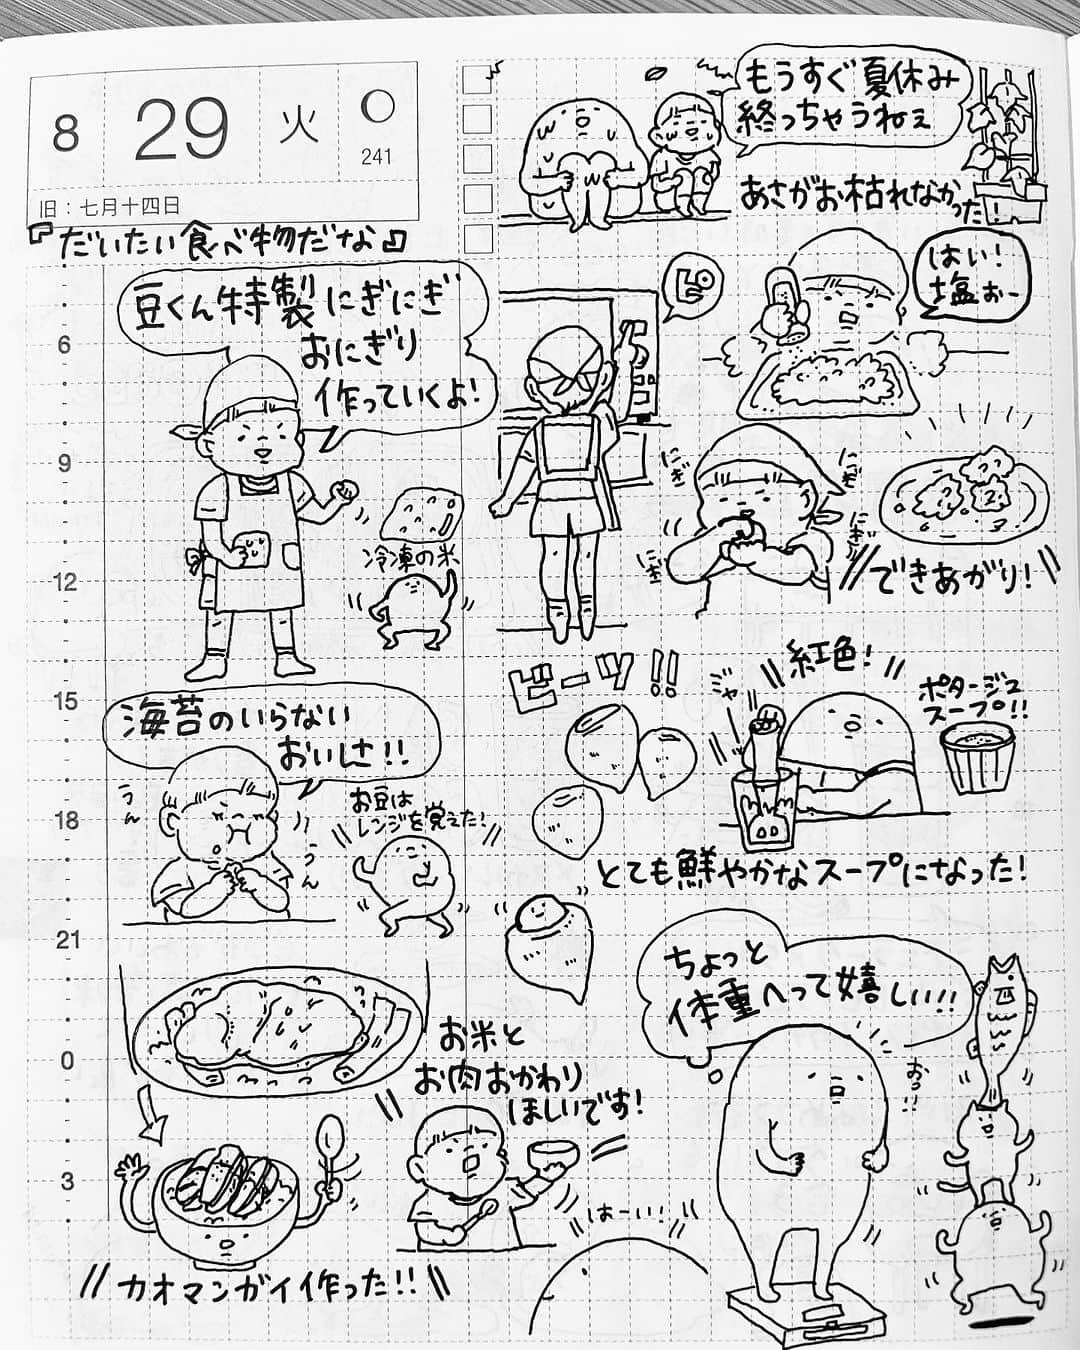 8
29
火
241
旧：七月十四日
『だいたい食べ物だな』
6
9
12
15
18
21
0
3
もうすぐ夏休み
終っちゃうねぇ
あさがお枯れなかった！
豆くん特製にぎにぎ
おにぎり
作っていくよ！
冷凍の米
ピ
はい！
塩ぉー
にぎ
にぎ
にぎ
にぎ
できあがり！
海苔のいらない
おいしさ！！
うん
うん
お豆は
レンジを覚えた！
ビーツ！！
紅色！
ジャー
ポタージュ
スープ！！
とても鮮やかなスープになった！
お米と
お肉おかわり
ほしいです！
はーい！
カオマンガイ作った！！
ちょっと
体重へって嬉しい！！
おっ！！